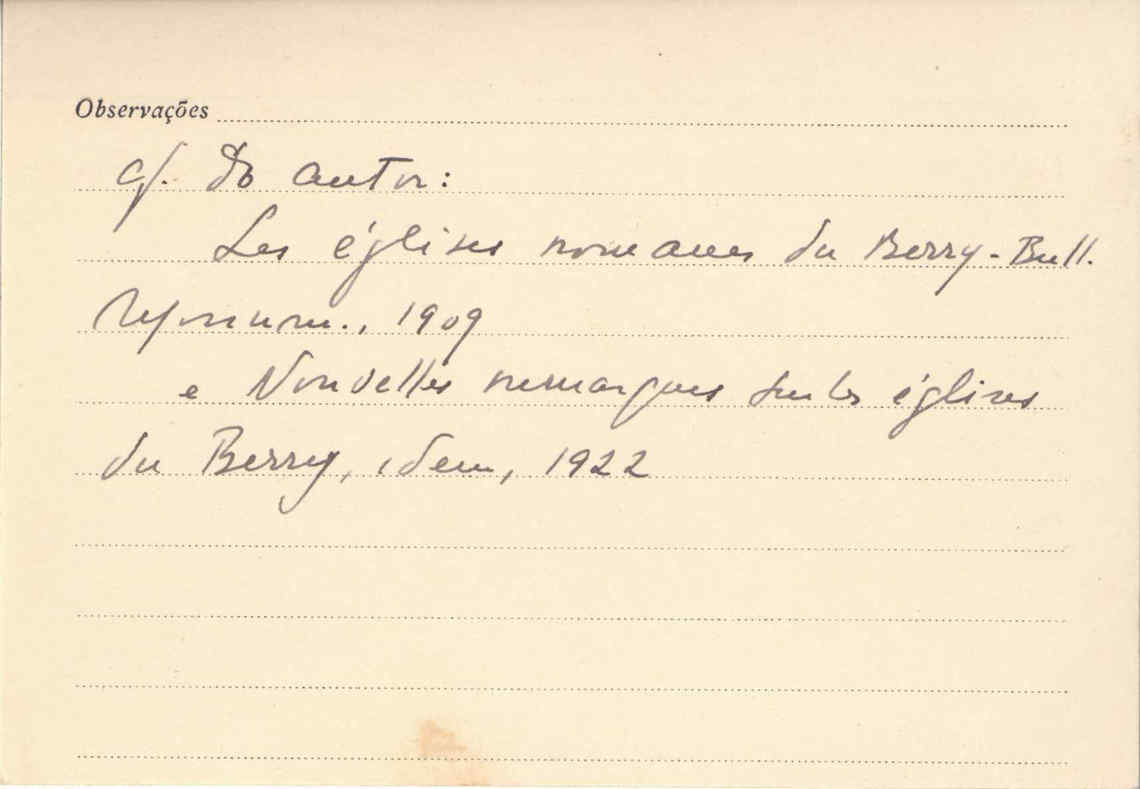 Observações
cf. do autor:
Les églises romanes du Berry - Bull.
Monum., 1909
e Nouvelles remarques sur les églises
du Berry, idem, 1922